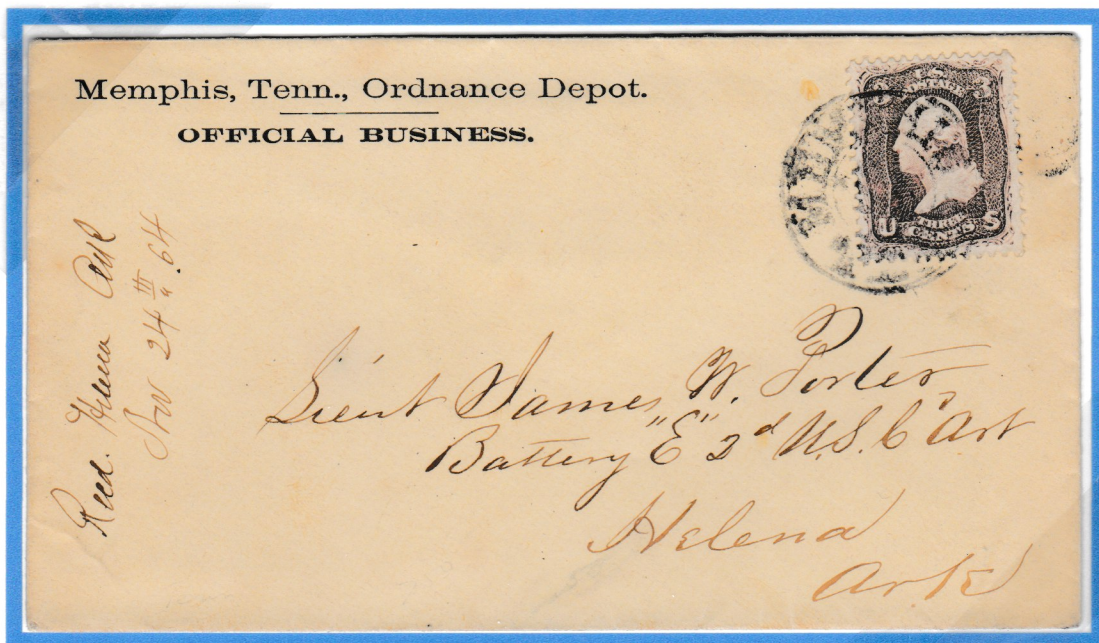 Memphis, Tenn., Ordnance Depot.
OFFICIAL BUSINESS.
3 3
U S
THREE
CENTS
Recd. Helena Ark
Nov 24 III " 64
Lieut James W. Porter,
Battery "E" 2d U.S. C'd Art
Helena
Ark